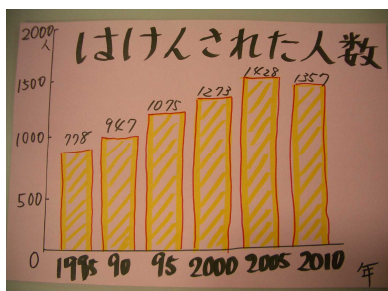 はけんされた人数
2000
人
1500
1000
500
0
778
947
1075
1273
1428
1357
1985 90 95 2000 2005 2010 年